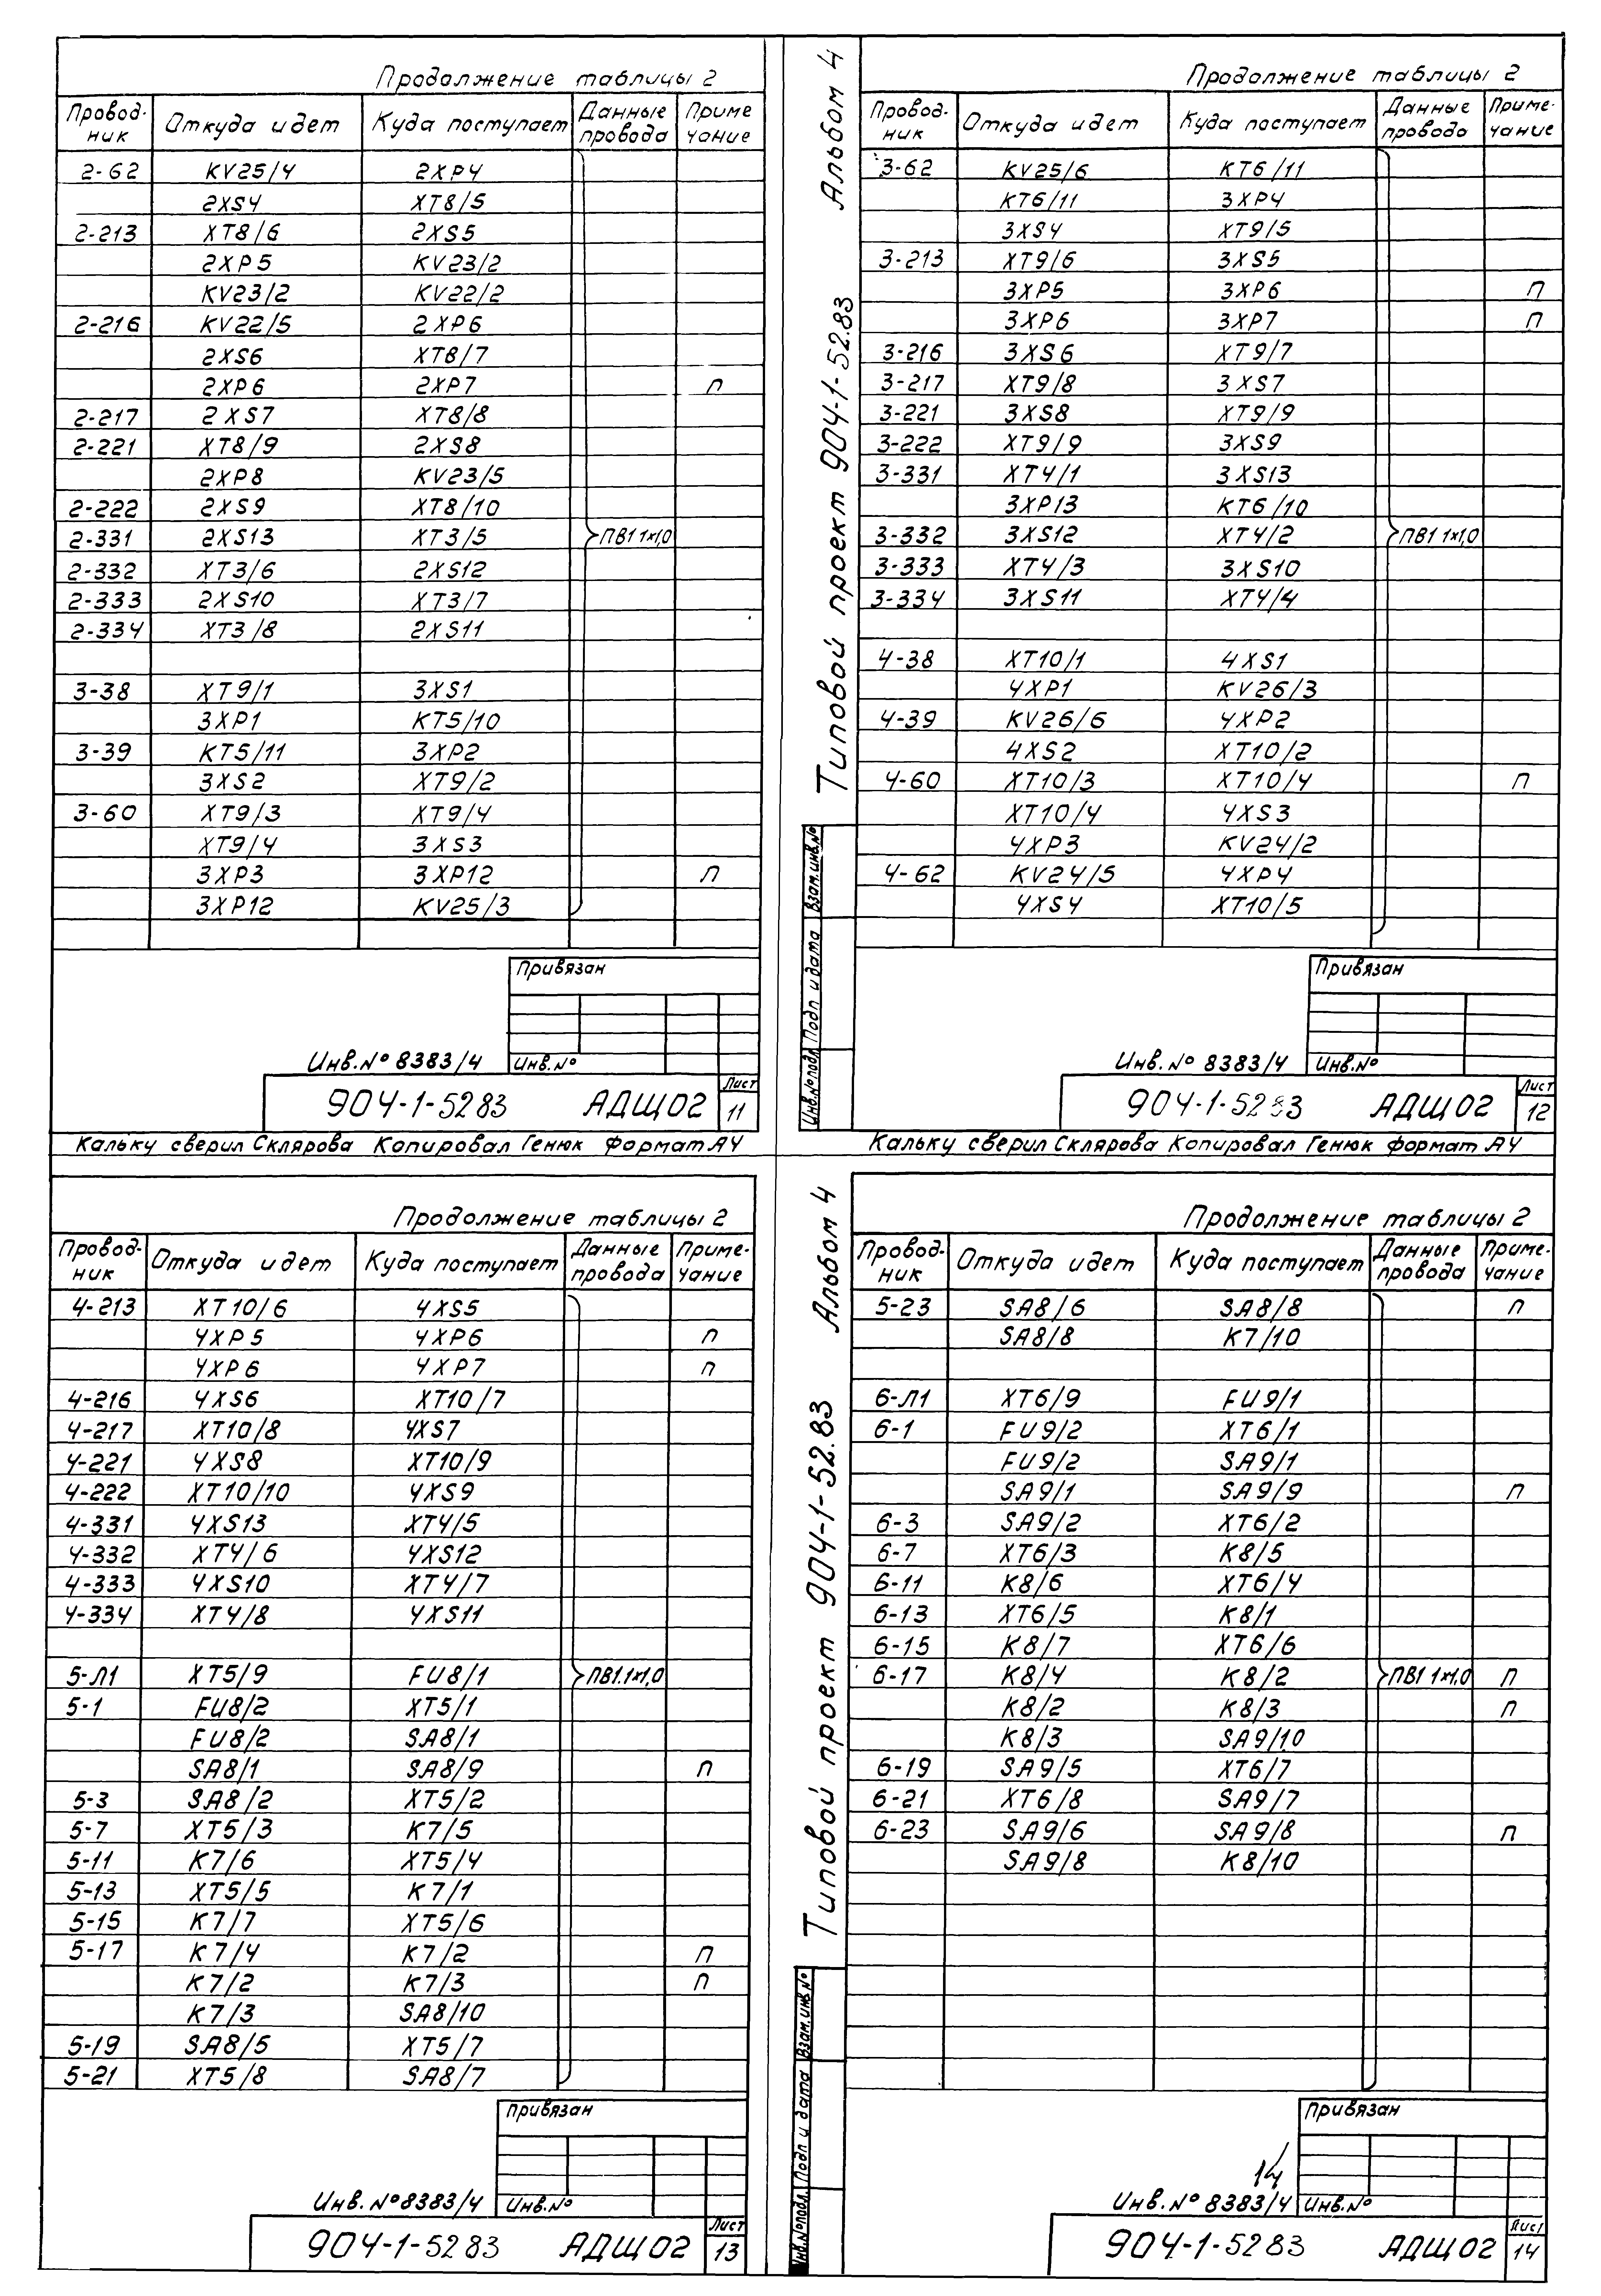 Продолжение таблицы 2
Провод-ник Откуда идет Куда поступает Данные провода Приме чание
2-62 KV25/4 2XP4
2XS4 XT8/5
2-213 XT8/6 2XS5
2XP5 KV23/2
KV23/2 KV22/2
2-216 KV22/5 2XP6
2XS6 XT8/7
2XP6 2XP7 п
2-217 2XS7 XT8/8
2-221 XT8/9 2XS8
2XP8 KV23/5
2-222 2XS9 XT8/10
2-331 2XS13 XT3/5 ПВ1 1х1,0
2-332 XT3/6 2XS12
2-333 2XS10 XT3/7
2-334 XT3/8 2XS11
3-38 XT9/1 3XS1
3XP1 KT5/10
3-39 KT5/11 3XP2
3XS2 XT9/2
3-60 XT9/3 XT9/4
XT9/4 3XS3
3XP3 3XP12 п
3XP12 KV25/3
Привязан
Инв.№ 8383/4 Инв.№
904-1-52 83 АДЩ02 Лист 11
Кальку сверил Склярова Копировал Генюк формат А4
Типовой проект 904-1-52.83 Альбом 4
Продолжение таблицы 2
Провод-ник Откуда идет Куда поступает Данные провода Приме-чание
3-62 KV25/6 KT6/11
KT6/11 3XP4
3XS4 XT9/5
3-213 XT9/6 3XS5
3XP5 3XP6 п
3XP6 3XP7 п
3-216 3XS6 XT9/7
3-217 XT9/8 3XS7
3-221 3XS8 XT9/9
3-222 XT9/9 3XS9
3-331 XT4/1 3XS13
3XP13 KT6/10
3-332 3XS12 XT4/2 ПВ1 1х1,0
3-333 XT4/3 3XS10
3-334 3XS11 XT4/4
4-38 XT10/1 4XS1
4XP1 KV26/3
4-39 KV26/6 4XP2
4XS2 XT10/2
4-60 XT10/3 XT10/4 п
XT10/4 4XS3
4XP3 KV24/2
4-62 KV24/5 4XP4
4XS4 XT10/5
Инв.№подл. Подп и дата Взам.инв.№
Привязан
Инв.№ 8383/4 Инв.№
904-1-52 83 АДЩ02 Лист 12
Кальку сверил Склярова Копировал Генюк формат А4
Продолжение таблицы 2
Провод-ник Откуда идет Куда поступает Данные провода Приме-чание
4-213 XT10/6 4XS5
4XP5 4XP6 п
4XP6 4XP7 п
4-216 4XS6 XT10/7
4-217 XT10/8 4XS7
4-221 4XS8 XT10/9
4-222 XT10/10 4XS9
4-331 4XS13 XT4/5
4-332 XT4/6 4XS12
4-333 4XS10 XT4/7
4-334 XT4/8 4XS11
5-Л1 XT5/9 FU8/1 ПВ1.1х1,0
5-1 FU8/2 XT5/1
FU8/2 SA8/1
SA8/1 SA8/9 п
5-3 SA8/2 XT5/2
5-7 XT5/3 K7/5
5-11 K7/6 XT5/4
5-13 XT5/5 K7/1
5-15 K7/7 XT5/6
5-17 K7/4 K7/2 п
K7/2 K7/3 п
K7/3 SA8/10
5-19 SA8/5 XT5/7
5-21 XT5/8 SA8/7
Привязан
Инв.№8383/4 Инв.№
904-1-52 83 АДЩ02 Лист 13
Типовой проект 904-1-52.83 Альбом 4
Продолжение таблицы 2
Провод-ник Откуда идет Куда поступает Данные провода Приме-чание
5-23 SA8/6 SA8/8 п
SA8/8 K7/10
6-Л1 XT6/9 FU9/1
6-1 FU9/2 XT6/1
FU9/2 SA9/1
SA9/1 SA9/9 п
6-3 SA9/2 XT6/2
6-7 XT6/3 K8/5
6-11 K8/6 XT6/4
6-13 XT6/5 K8/1
6-15 K8/7 XT6/6
6-17 K8/4 K8/2 ПВ1 1х1,0 п
K8/2 K8/3 п
K8/3 SA9/10
6-19 SA9/5 XT6/7
6-21 XT6/8 SA9/7
6-23 SA9/6 SA9/8 п
SA9/8 K8/10
Инв.№подл. Подп и дата Взам.инв №
Привязан
14
Инв.№ 8383/4 Инв.№
904-1-52 83 АДЩ02 Лист 14